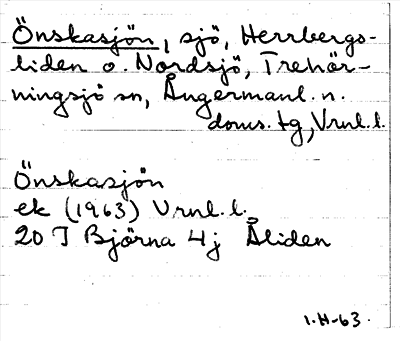 Önskasjön, sjö, Herrbergs-
liden o. Nordsjö, Trehör-
ningsjö sn, Ångermanl. n.
doms. tg, Vrnl. l.
Önskasjön
ek (1963) Vrnl. l.
20 I Björna 4j Åliden
1.H-63.